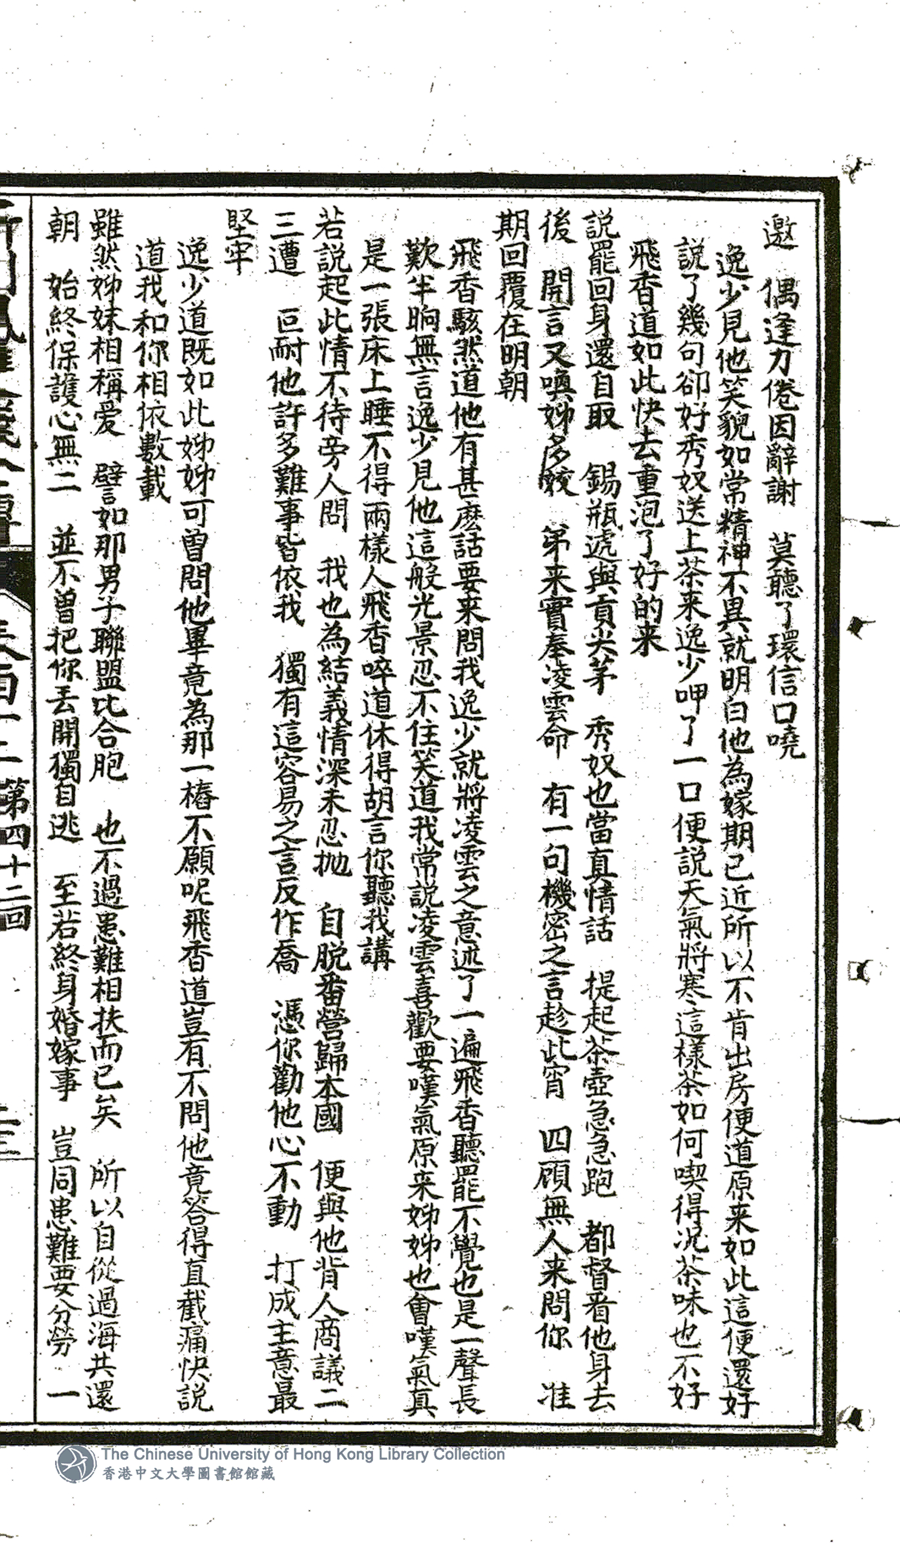 邀　偶逢力倦因辭謝　莫聽了環信口嘵
逸少見他笑貌如常精神不異就明白他為嫁期已近所以不肯出房便道原来如此這便還好
說了幾句卻好秀奴送上茶来逸少呷了一口便説天氣將寒這樣茶如何喫得况茶味也不好
飛香道如此快去重泡了好的来
説罷回身還自取　錫瓶遞與貢尖茅　秀奴也當真情話　提起茶壺急急跑　都督看他身去
後　開言又喚姊多嬌　弟来實奉凌雲命　有一句機密之言趁此宵　四顧無人来問你　准
期回覆在明朝
飛香駭然道他有甚麽話要来問我逸少就將凌雲之意述了一遍飛香聽罷不覺也是一聲長
歎半晌無言逸少見他這般光景忍不住笑道我常説凌雲喜歡要嘆氣原来姊姊也會嘆氣真
是一張床上睡不得兩樣人飛香啐道休得胡言你聽我講
若説起此情不待旁人問　我也為結義情深未忍抛　自脱番營歸本國　便與他背人商議二
三遭　叵耐他許多難事皆依我　獨有這容易之言反作喬　憑你勸他心不動　打成主意最
堅牢
逸少道既如此姊姊可曽問他畢竟為那一樁不願呢飛香道豈有不問他竟答得直截痛快説
道我和你相依數載
雖然姊妹相稱爱　譬如那男子聯盟比合胞　也不過患難相扶而已矣　所以自從過海共還
朝　始終保護心無二　並不曽把你丢開獨自逃　至若終身婚嫁事　豈同患難要分勞　一
第四十二回
The Chinese University of Hong Kong Library Collection
香港中文大學圖書館館藏